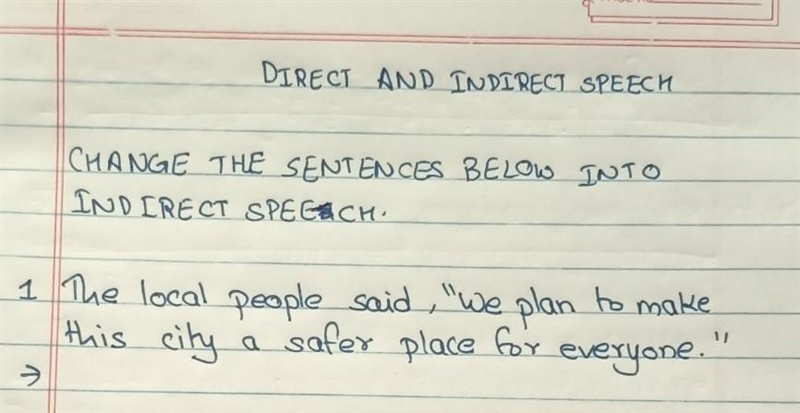 DIRECT AND INDIRECT SPEECH
CHANGE THE SENTENCES BELOW INTO
INDIRECT SPEECH.
1 The local people said, "We plan to make
this city a safer place for everyone."
→